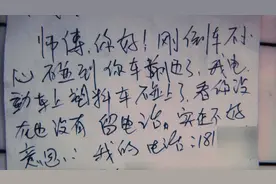 师傅，你好！刚倒车不小
心 不碰到你车 了，我电
动车上 料车 不碰上了，看你没
在也没有留电话。实在不好
意思∴ 我的电话：181